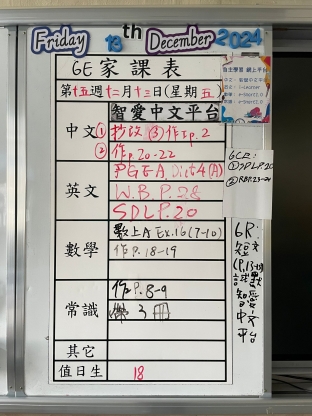 Friday 13th December 2024
6E 家課表
第十五週十二月十三日(星期五)
智愛中文平台
中文
① 抄改③作文p.2
② 作p.20-22
英文
PGEA Dict4(A)
W.B.P.28
SDLP.20
數學
數上A Ex.16(7-10)
作P.18-19
常識
作P.8-9
常3冊
其它
值日生
18
自主學習 網上平台
6CE:
①SDLP.20
②RBP.23-24
6R:
短文
(P.13-18)
試數
智愛
中文
平台